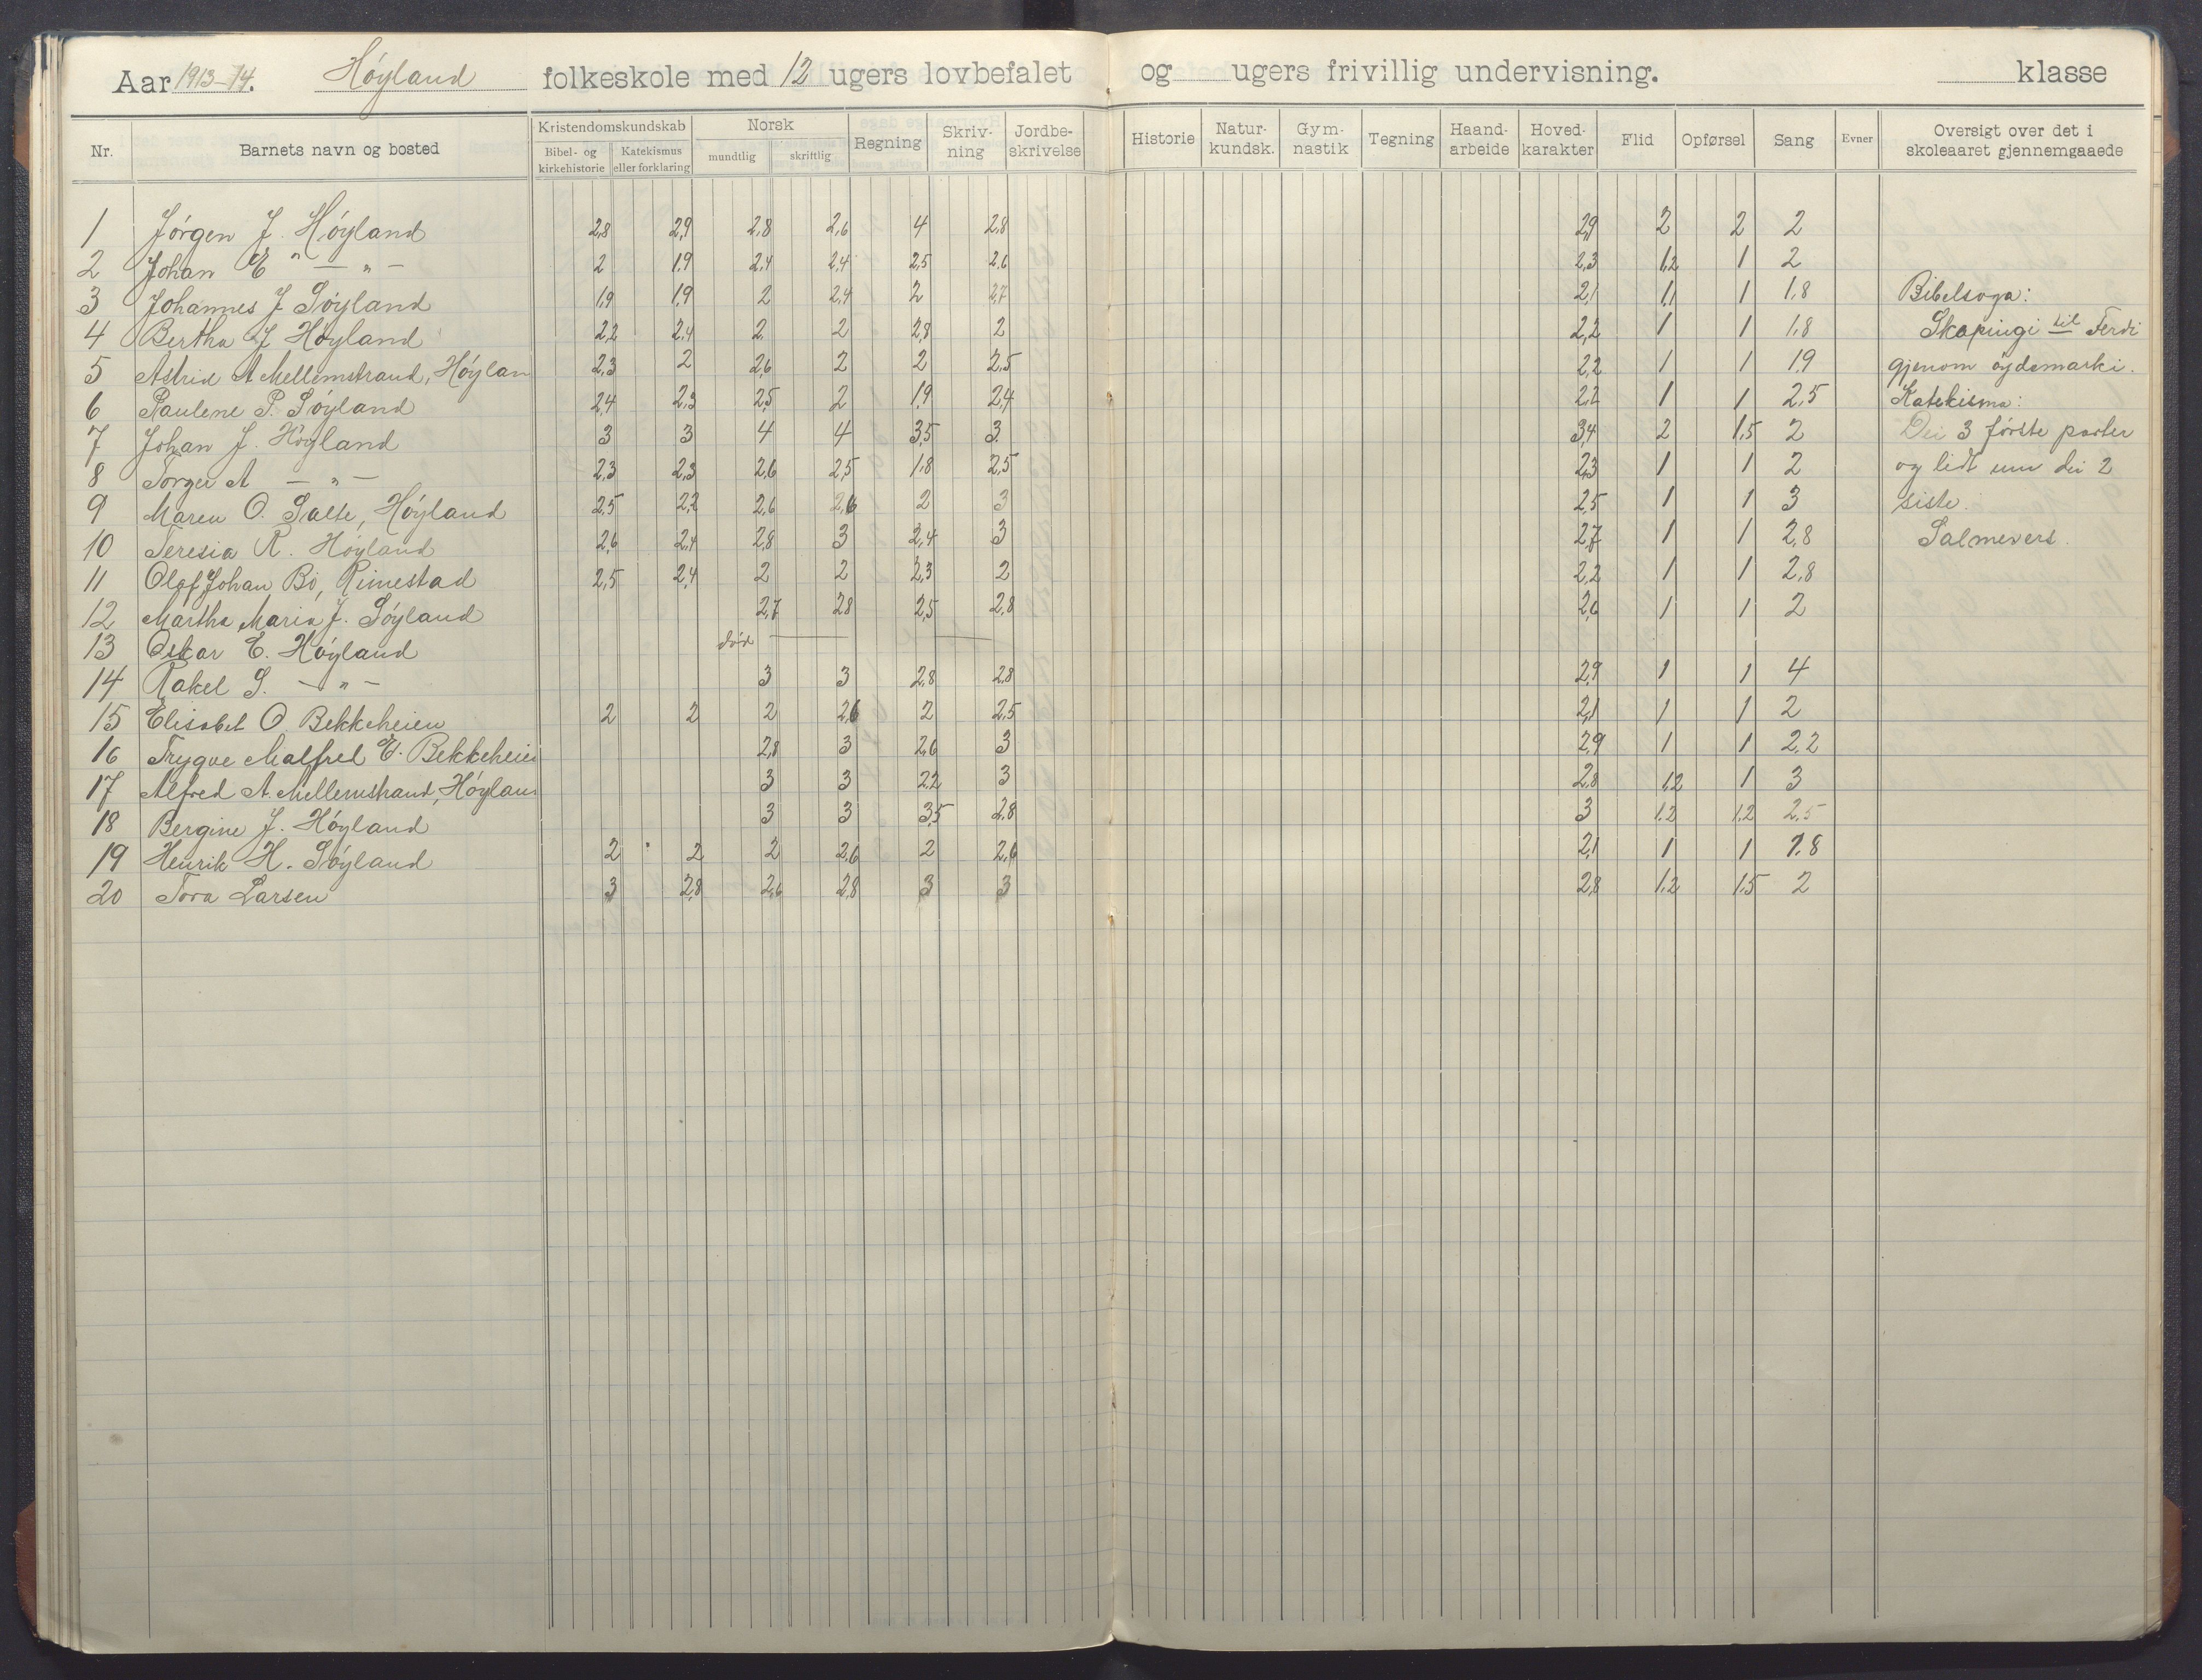 Aar 1913-14. Høyland folkeskole med 12 ugers lovbefalet og ugers frivillig undervisning. klasse
Nr. Barnets navn og bosted Kristendomskundskab Norsk Regning Skriv-ning Jordbe-skrivelse Historie Natur-kundsk. Gym-nastik Tegning Haand-arbeide Hoved-karakter Flid Opførsel Sang Evner Oversigt over det i skoleaaret gjennemgaaede
Bibel- og kirkehistorie Katekismus eller forklaring mundtlig skriftlig
1 Jørgen J. Høyland 2,8 2,9 2,8 2,6 4 2,8 2,9 2 2 2
2 Johan E — " — 2 1,9 2,4 2,4 2,5 2,6 2,3 1,2 1 2
3 Johannes J Søyland 1,9 1,9 2 2,4 2 2,7 2,1 1,1 1 1,8 Bibelsoga:
4 Bertha J Høyland 2,2 2,4 2 2 2,8 2 2,2 1 1 1,8 Skapingi til Ferdi
5 Astrid A Mellemstrand, Høylan 2,3 2 2,6 2 2 2,5 2,2 1 1 1,9 gjenom øydemarki.
6 Paulene P. Søyland 2,4 2,3 2,5 2 1,9 2,4 2,2 1 1 2,5 Katekisma:
7 Johan J. Høyland 3 3 4 4 3,5 3 3,4 2 1,5 2 Dei 3 første parter
8 Torger A — " — 2,3 2,3 2,6 2,5 1,8 2,5 2,3 1 1 2 og lidt um dei 2
9 Maren O. Salte, Høyland 2,5 2,2 2,6 2,6 2 3 2,5 1 1 3 siste.
10 Teresia R. Høyland 2,6 2,4 2,8 3 2,4 3 2,7 1 1 2,8 Salmevers.
11 Olaf Johan Bø, Rimestad 2,5 2,4 2 2 2,3 2 2,2 1 1 2,8
12 Martha Maria J. Søyland 2,7 2,8 2,5 2,8 2,6 1 1 2
13 Oskar E. Høyland død — —
14 Rakel S. — " — 3 3 2,8 2,8 2,9 1 1 4
15 Elisabet O. Bekkeheien 2 2 2 2,6 2 2,5 2,1 1 1 2
16 Trygve Malfred E. Bekkeheien 2,8 3 2,6 3 2,9 1 1 2,2
17 Alfred A. Mellemstrand, Høylan 3 3 2,2 3 2,8 1,2 1 3
18 Bergine J. Høyland 3 3 3,5 2,8 3 1,2 1,2 2,5
19 Henrik H. Søyland 2 2 2 2,6 2 2,6 2,1 1 1 1,8
20 Tora Larsen 3 2,8 2,6 2,8 3 3 2,8 1,2 1,5 2